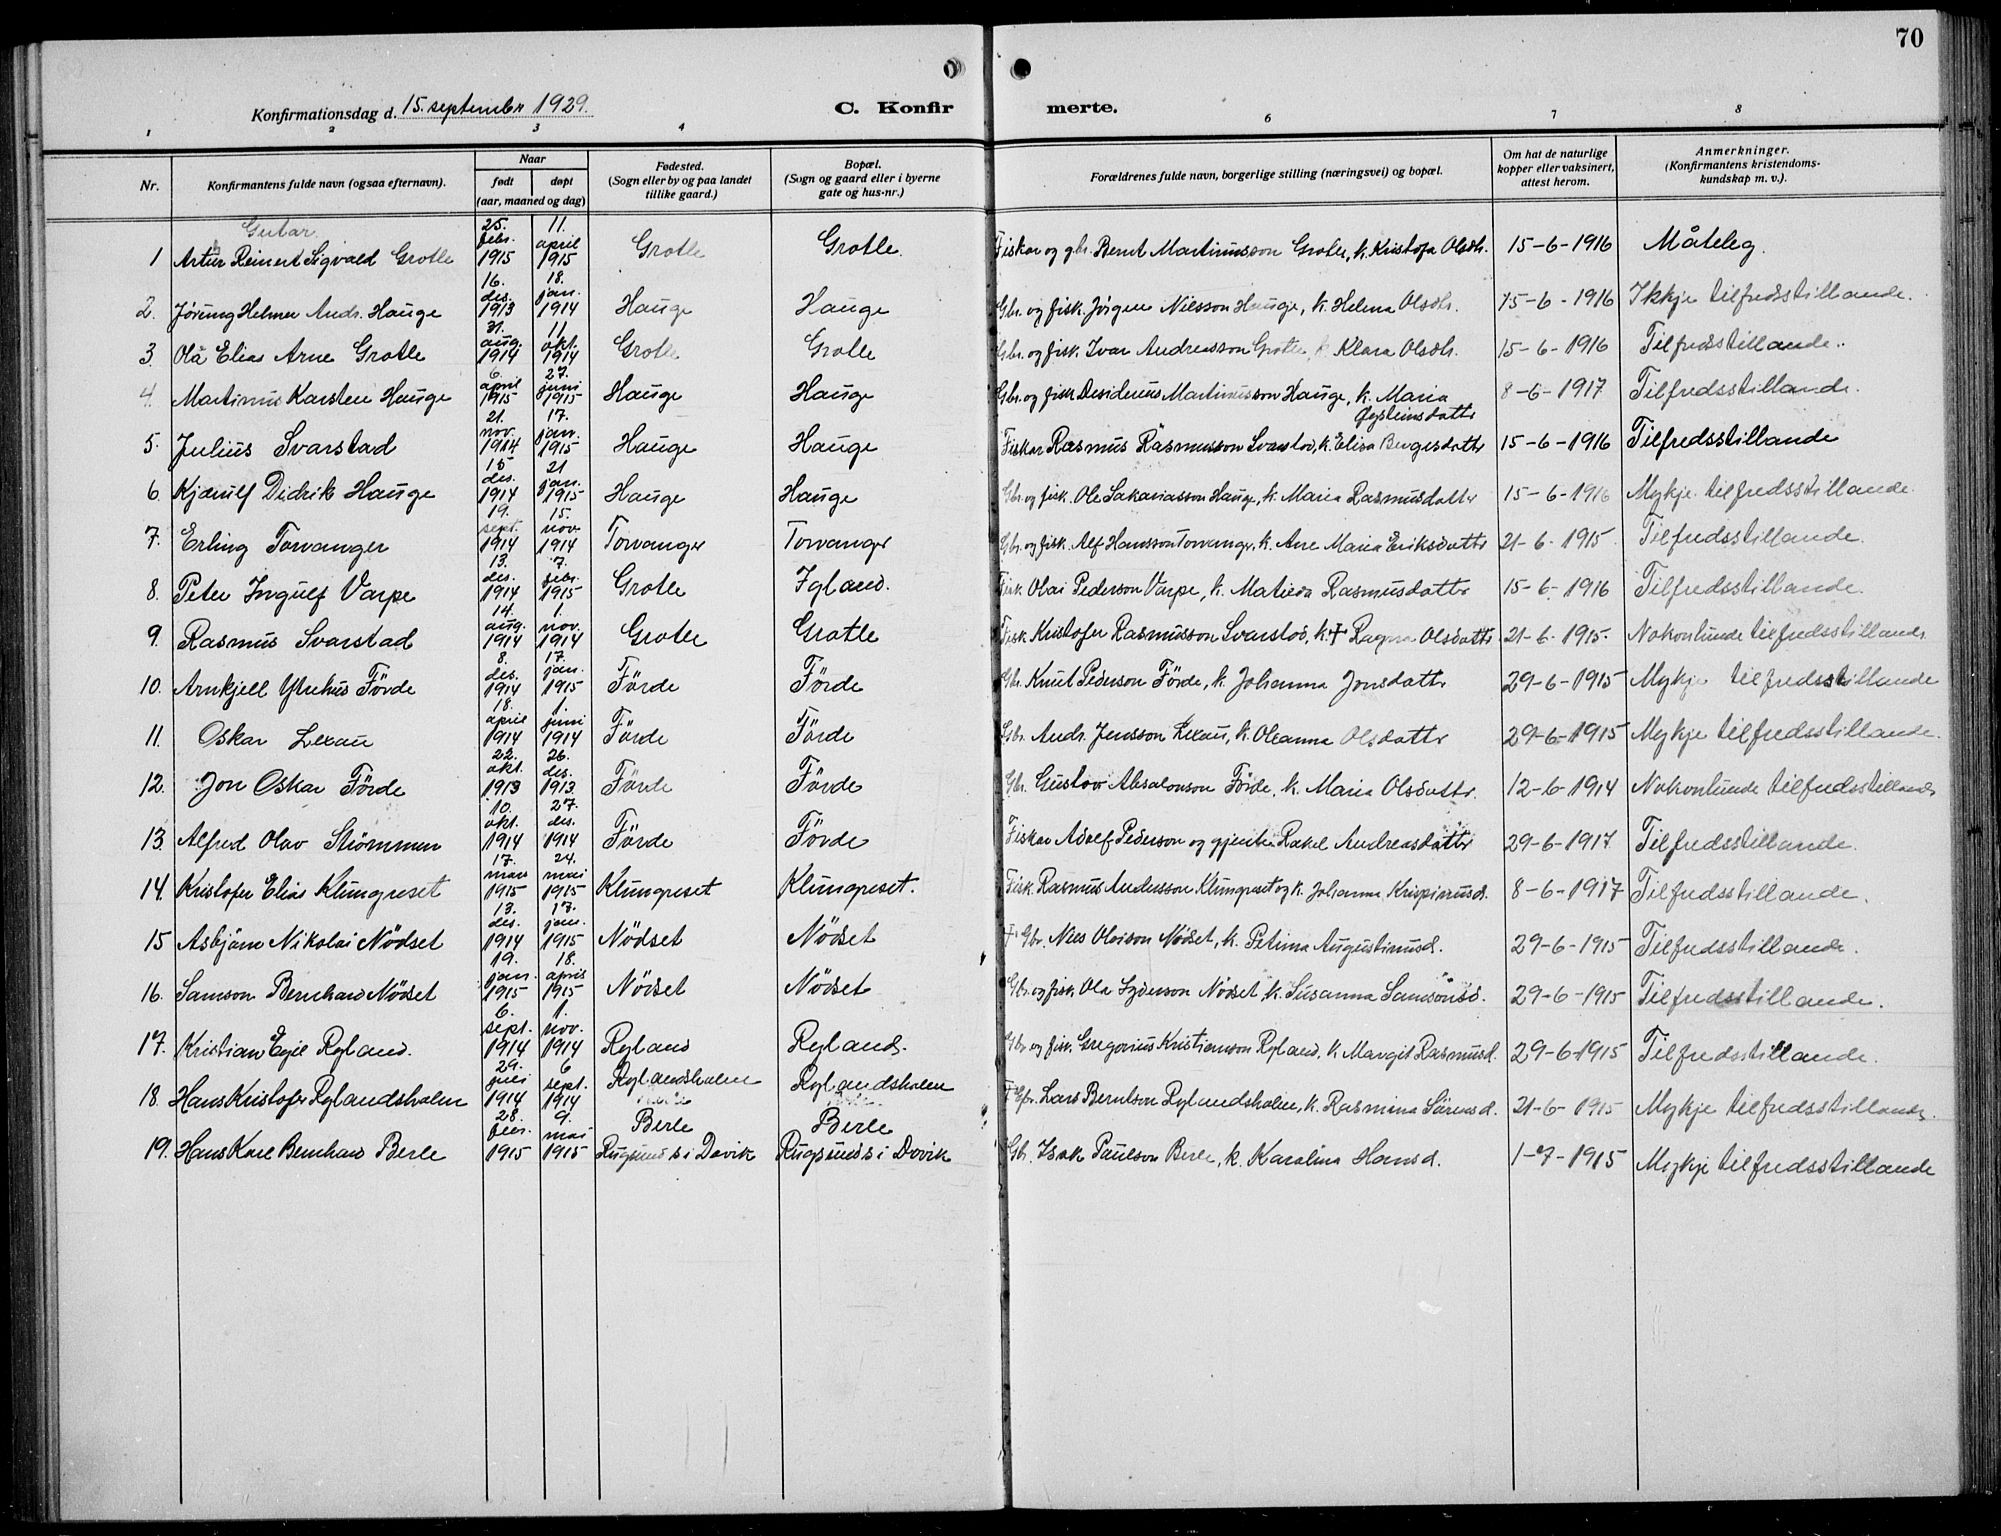 70
Konfirmationsdag d. 15. september 1929.
C. Konfir merte.
1 2 3 4 6 7 8
Nr.
Konfirmantens fulde navn (ogsaa efternavn).
Naar
født døpt
(aar, maaned og dag)
Fødested.
(Sogn eller by og paa landet
tillike gaard.)
Bopæl.
(Sogn og gaard eller i byerne
gate og hus-nr.)
Forældrenes fulde navn, borgerlige stilling (næringsvei) og bopæl.
Om hat de naturlige
kopper eller vaksinert,
attest herom.
Anmerkninger.
(Konfirmantens kristendoms-
kundskap m. v.).
Gutar.
1 Artur Reinert Sigvald Grotle 25. febr. 1915 11. april 1915 Grotle Grotle. Fiskar og gbr. Bernt Martinusson Grotle, k. Kristofa Olsdr. 15-6-1916 Måteleg.
2. Jørung Helmer Andr. Hauge 16. des. 1913 18. jan. 1914 Hauge Hauge Gbr. og fisk. Jørgen Nilsson Hauge, k. Helena Olsdr. 15-6-1916 Ikkje tilfredsstillande.
3. Ola Elias Arne Grotle 31. aug. 1914 11. okt. 1914 Grotle Grotle Gbr. og fisk. Ivar Andreasson Grotle k. Klara Olsdr. 15-6-1916 Tilfredsstillande.
4. Martinus Karsten Hauge 6. april 1915 27. juni 1915 Hauge Hauge Gbr. og fisk Desiderius Martinusson Hauge, k. Maria Øysteinsdottr 8-6-1917 Tilfredsstillande.
5. Julius Svarstad 21. nov. 1914 17. jan. 1915 Hauge Hauge Fiskar Rasmus Rasmusson Svarstad, k. Elisa Bergesdottr 15-6-1916 Tilfredsstillande
6. Kjærulf Didrik Hauge 15 des. 1914 21 jan. 1915 Hauge Hauge Gbr. og fisk. Ole Sakariasson Hauge, k. Maria Rasmusdottr 15-6-1916 Mykje tilfredsstillande.
7. Erling Torvanger 19. sept. 1914 15. nov. 1914 Torvanger Torvanger Gbr. og fisk. Alf Hansson Torvanger, k. Ane Maria Eriksdottr 21-6-1915. Tilfredsstillande.
8. Peter Ingulf Varpe 13. des. 1914 7. febr. 1915 Grotle Igland. Fisk. Olai Pederson Varpe, k. Matilda Rasmusdottr 15-6-1916 Tilfredsstillande.
9. Rasmus Svarstad 14. aug. 1914 1. nov. 1914 Grotle Grotle Fisk. Kristofer Rasmusson Svarstad, k. † Ragna Olsdottr. 21-6-1915. Nokonlunde tilfredsstillande.
10. Arnkjell Ytrehus Förde 8. des. 1914 17. jan. 1915 Förde Förde Gbr. Knut Pederson Förde, k. Johanna Jonsdottr 29-6-1915 Mykje tilfredsstillande
11. Oskar Lexau 18. april 1914 1. juni 1914 Förde Förde Gbr. Andr. Jensson Lexau, k. Oleanna Olsdottr 29-6-1915 Mykje tilfredsstillande.
12. Jon Oskar Förde 22. okt. 1913 26. des. 1913 Förde Förde Gbr. Gustav Absalonson Förde, k. Maria Olsdottr. 12-6-1914 Nokonlunde tilfredsstillande
13. Alfred Olav Strömmen 10. okt. 1914 27. des. 1914 Förde Förde Fiskar Adolf Pederson og gjenta Rakel Andreasdottr 29-6-1917 Tilfredsstillande.
14. Kristofer Elias Klungreset 17. mars 1915 24. mai 1915 Klungreset Klungreset. Fisk. Rasmus Andersson Klungreset og k. Johanna Krispinusd. 8-6-1917 Tilfredsstillande.
15 Asbjörn Nikolai Nödset 13. des. 1914 17. jan. 1915 Nödset Nödset † Gbr. Nils Olaison Nödset, k. Petina Augustinusd. 29-6-1915 Tilfredsstillande.
16. Samson Bernhard Nödset 19. jan. 1915 18. april 1915 Nödset Nödset Gbr. og fisk. Ola Syderson Nödset, k. Susanna Samsonsd. 29-6-1915 Tilfredsstillande.
17. Kristian Egil Ryland. 6. sept. 1914 1. nov. 1914 Ryland Rylands. Gbr. og fisk. Gregorius Kristianson Ryland, k. Margit Rasmusd. 29-6-1915 Tilfredsstillande.
18. Hans Kristofer Rylandsholm 29. juli 1914 6 sept. 1914 Rylandsholm Rylandsholm † Gbr. Lars Berntson Rylandsholm, k. Rasmina Sörensd. 21-6-1915 Mykje tilfredsstillande.
19. Hans Karl Bernhard Berle 28. febr. 1915 9. mai 1915 Berle Rugsund s. i Davik Berle Rugsunds i Davik Gbr. Isak Paulson Berle, k. Karolina Hansd. 1-7-1915 Mykje tilfredsstillande